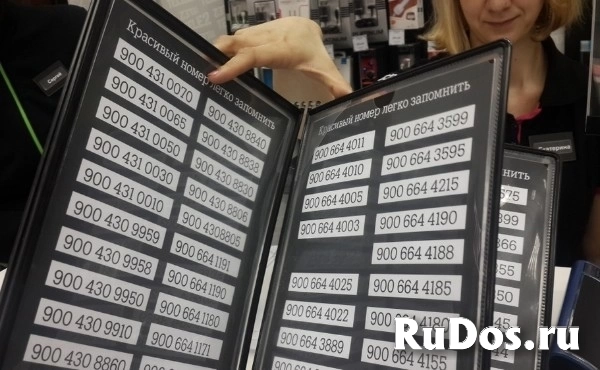 Красивый номер легко запомнить
900 431 0070
900 431 0065
900 431 0050
900 431 0030
900 431 0010
900 430 9959
900 430 9958
900 430 9950
900 430 9910
900 430 8860
900 430 8840
900 430 8838
900 430 8830
900 430 8806
900 4308805
900 664 1191
900 664 1190
900 664 1180
900 664 1171
Красивый номер легко запомнить
900 664 4011
900 664 4010
900 664 4005
900 664 4003
900 664 4025
900 664 4022
900 664 3889
900 664 3599
900 664 3595
900 664 4215
900 664 4190
900 664 4188
900 664 4185
900 664 4155
нить
575
399
366
355
RuDos.ru